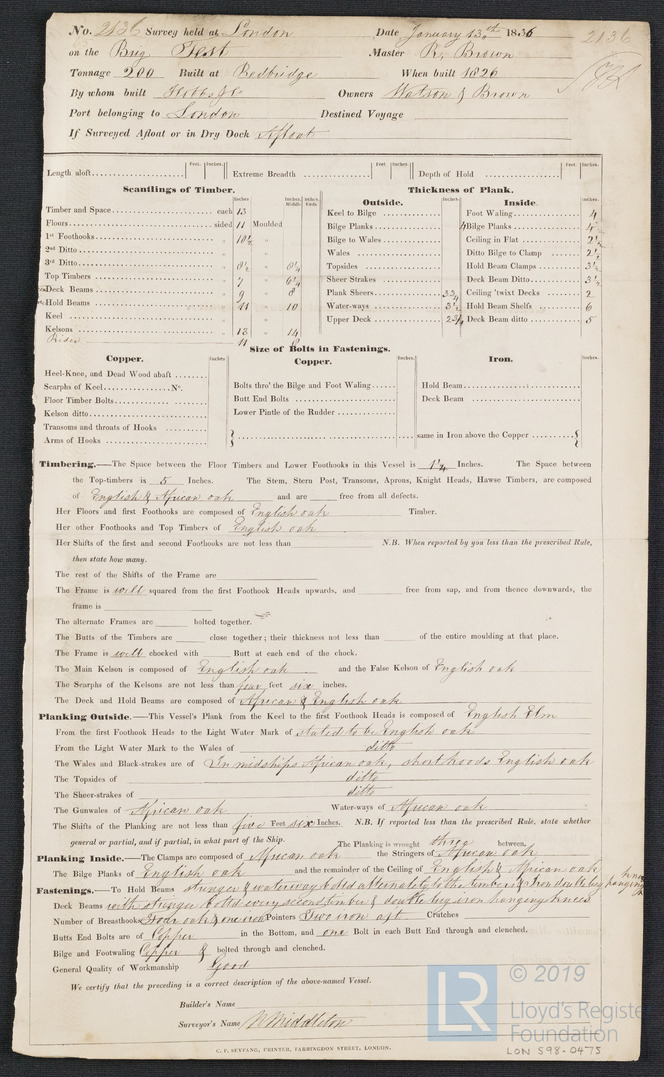 No. 2136 Survey held at London Date January 13th 1836 2136
on the Brig Test Master R. Brown
Tonnage 200 Built at Redbridge When built 1826
By whom built Owners Watson & Brown
Port belonging to London Destined Voyage
If Surveyed Afloat or in Dry Dock Afloat
Length aloft Feet. Inches. Extreme Breadth Feet Inches. Depth of Hold Feet. Inches.
Scantlings of Timber. Thickness of Plank.
Inches Inches. Middle Inches. Ends Outside. Inches. Inside. Inches.
Timber and Space each 13 Keel to Bilge Foot Waling 4
Floors sided 11 Moulded Bilge Planks 4 Bilge Planks 4
1st Foothooks „ 10½ „ Bilge to Wales Ceiling in Flat 2½
2nd Ditto „ „ Wales Ditto Bilge to Clamp 2½
3rd Ditto „ 8½ „ 8¼ Topsides Hold Beam Clamps 3½
Top Timbers „ 7 „ 6¼ Sheer Strakes Deck Beam Ditto 3½
Deck Beams „ 9 „ 8 Plank Sheers 3¾ Ceiling 'twixt Decks 2
Hold Beams „ 11 „ 10 Water-ways 3½ Hold Beam Shelfs 6
Keel „ „ Upper Deck 2¾ Deck Beam ditto 5
Kelsons „ 13 „ 14
Rider 11
Size of Bolts in Fastenings.
Copper. Inches Copper. Inches. Iron. Inches.
Heel-Knee, and Dead Wood abaft
Scarphs of Keel No. Bolts thro' the Bilge and Foot Waling Hold Beam
Floor Timber Bolts Butt End Bolts Deck Beam
Kelson ditto Lower Pintle of the Rudder
Transoms and throats of Hooks
Arms of Hooks same in Iron above the Copper
Timbering.—The Space between the Floor Timbers and Lower Foothooks in this Vessel is 1¼ Inches. The Space between
the Top-timbers is 5 Inches. The Stem, Stern Post, Transoms, Aprons, Knight Heads, Hawse Timbers, are composed
of English & African oak and are free from all defects.
Her Floors and first Foothooks are composed of English oak Timber.
Her other Foothooks and Top Timbers of English oak
Her Shifts of the first and second Foothooks are not less than N.B. When reported by you less than the prescribed Rule,
then state how many.
The rest of the Shifts of the Frame are
The Frame is well squared from the first Foothook Heads upwards, and free from sap, and from thence downwards, the
frame is
The alternate Frames are bolted together.
The Butts of the Timbers are close together; their thickness not less than of the entire moulding at that place.
The Frame is well chocked with Butt at each end of the chock.
The Main Kelson is composed of English oak and the False Kelson of English oak
The Scarphs of the Kelsons are not less than four feet six inches.
The Deck and Hold Beams are composed of African & English oak
Planking Outside.—This Vessel's Plank from the Keel to the first Foothook Heads is composed of English Elm
From the first Foothook Heads to the Light Water Mark of stated to be English oak
From the Light Water Mark to the Wales of ditto
The Wales and Black-strakes are of In midships African oak, short hoods English oak
The Topsides of ditto
The Sheer-strakes of ditto
The Gunwales of African oak Water-ways of African oak
The Shifts of the Planking are not less than five Feet six Inches. N.B. If reported less than the prescribed Rule, state whether
general or partial, and if partial, in what part of the Ship. The Planking is wrought three between.
Planking Inside.—The Clamps are composed of African oak the Stringers of African oak
The Bilge Planks of English oak and the remainder of the Ceiling of English & African oak
Fastenings.—To Hold Beams stringer & waterway bolted alternately to the timbers & Iron double leg hanging knees
Deck Beams with stringer bolted every second timber & double leg iron hanging knees
Number of Breasthooks Four oak & one iron Pointers Two iron aft Crutches
Butts End Bolts are of Copper in the Bottom, and one Bolt in each Butt End through and clenched.
Bilge and Footwaling Copper & bolted through and clenched.
General Quality of Workmanship Good
We certify that the preceding is a correct description of the above-named Vessel.
Builder's Name
Surveyor's Name Middleton
C. F. SEYFANG, PRINTER, FARRINGDON STREET, LONDON.
LR © 2019
Lloyd's Registe
Foundation
LON 598-0475